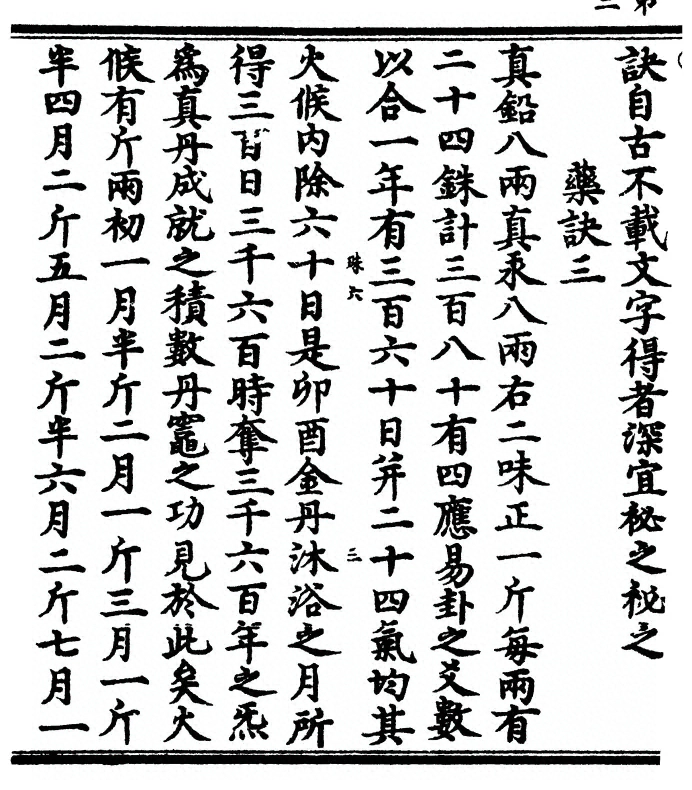 訣自古不載文字得者深宜祕之祕之
藥訣三
真鉛八兩真汞八兩右二味正一斤每兩有
二十四銖計三百八十有四應易卦之爻數
以合一年有三百六十日并二十四氣均其
火候內除六十日是卯酉金丹沐浴之月所
得三百日三千六百時奪三千六百年之炁
為真丹成就之積數丹竈之功見於此矣火
候有斤兩初一月半斤二月一斤三月一斤
半四月二斤五月二斤半六月二斤七月一
珠六
三